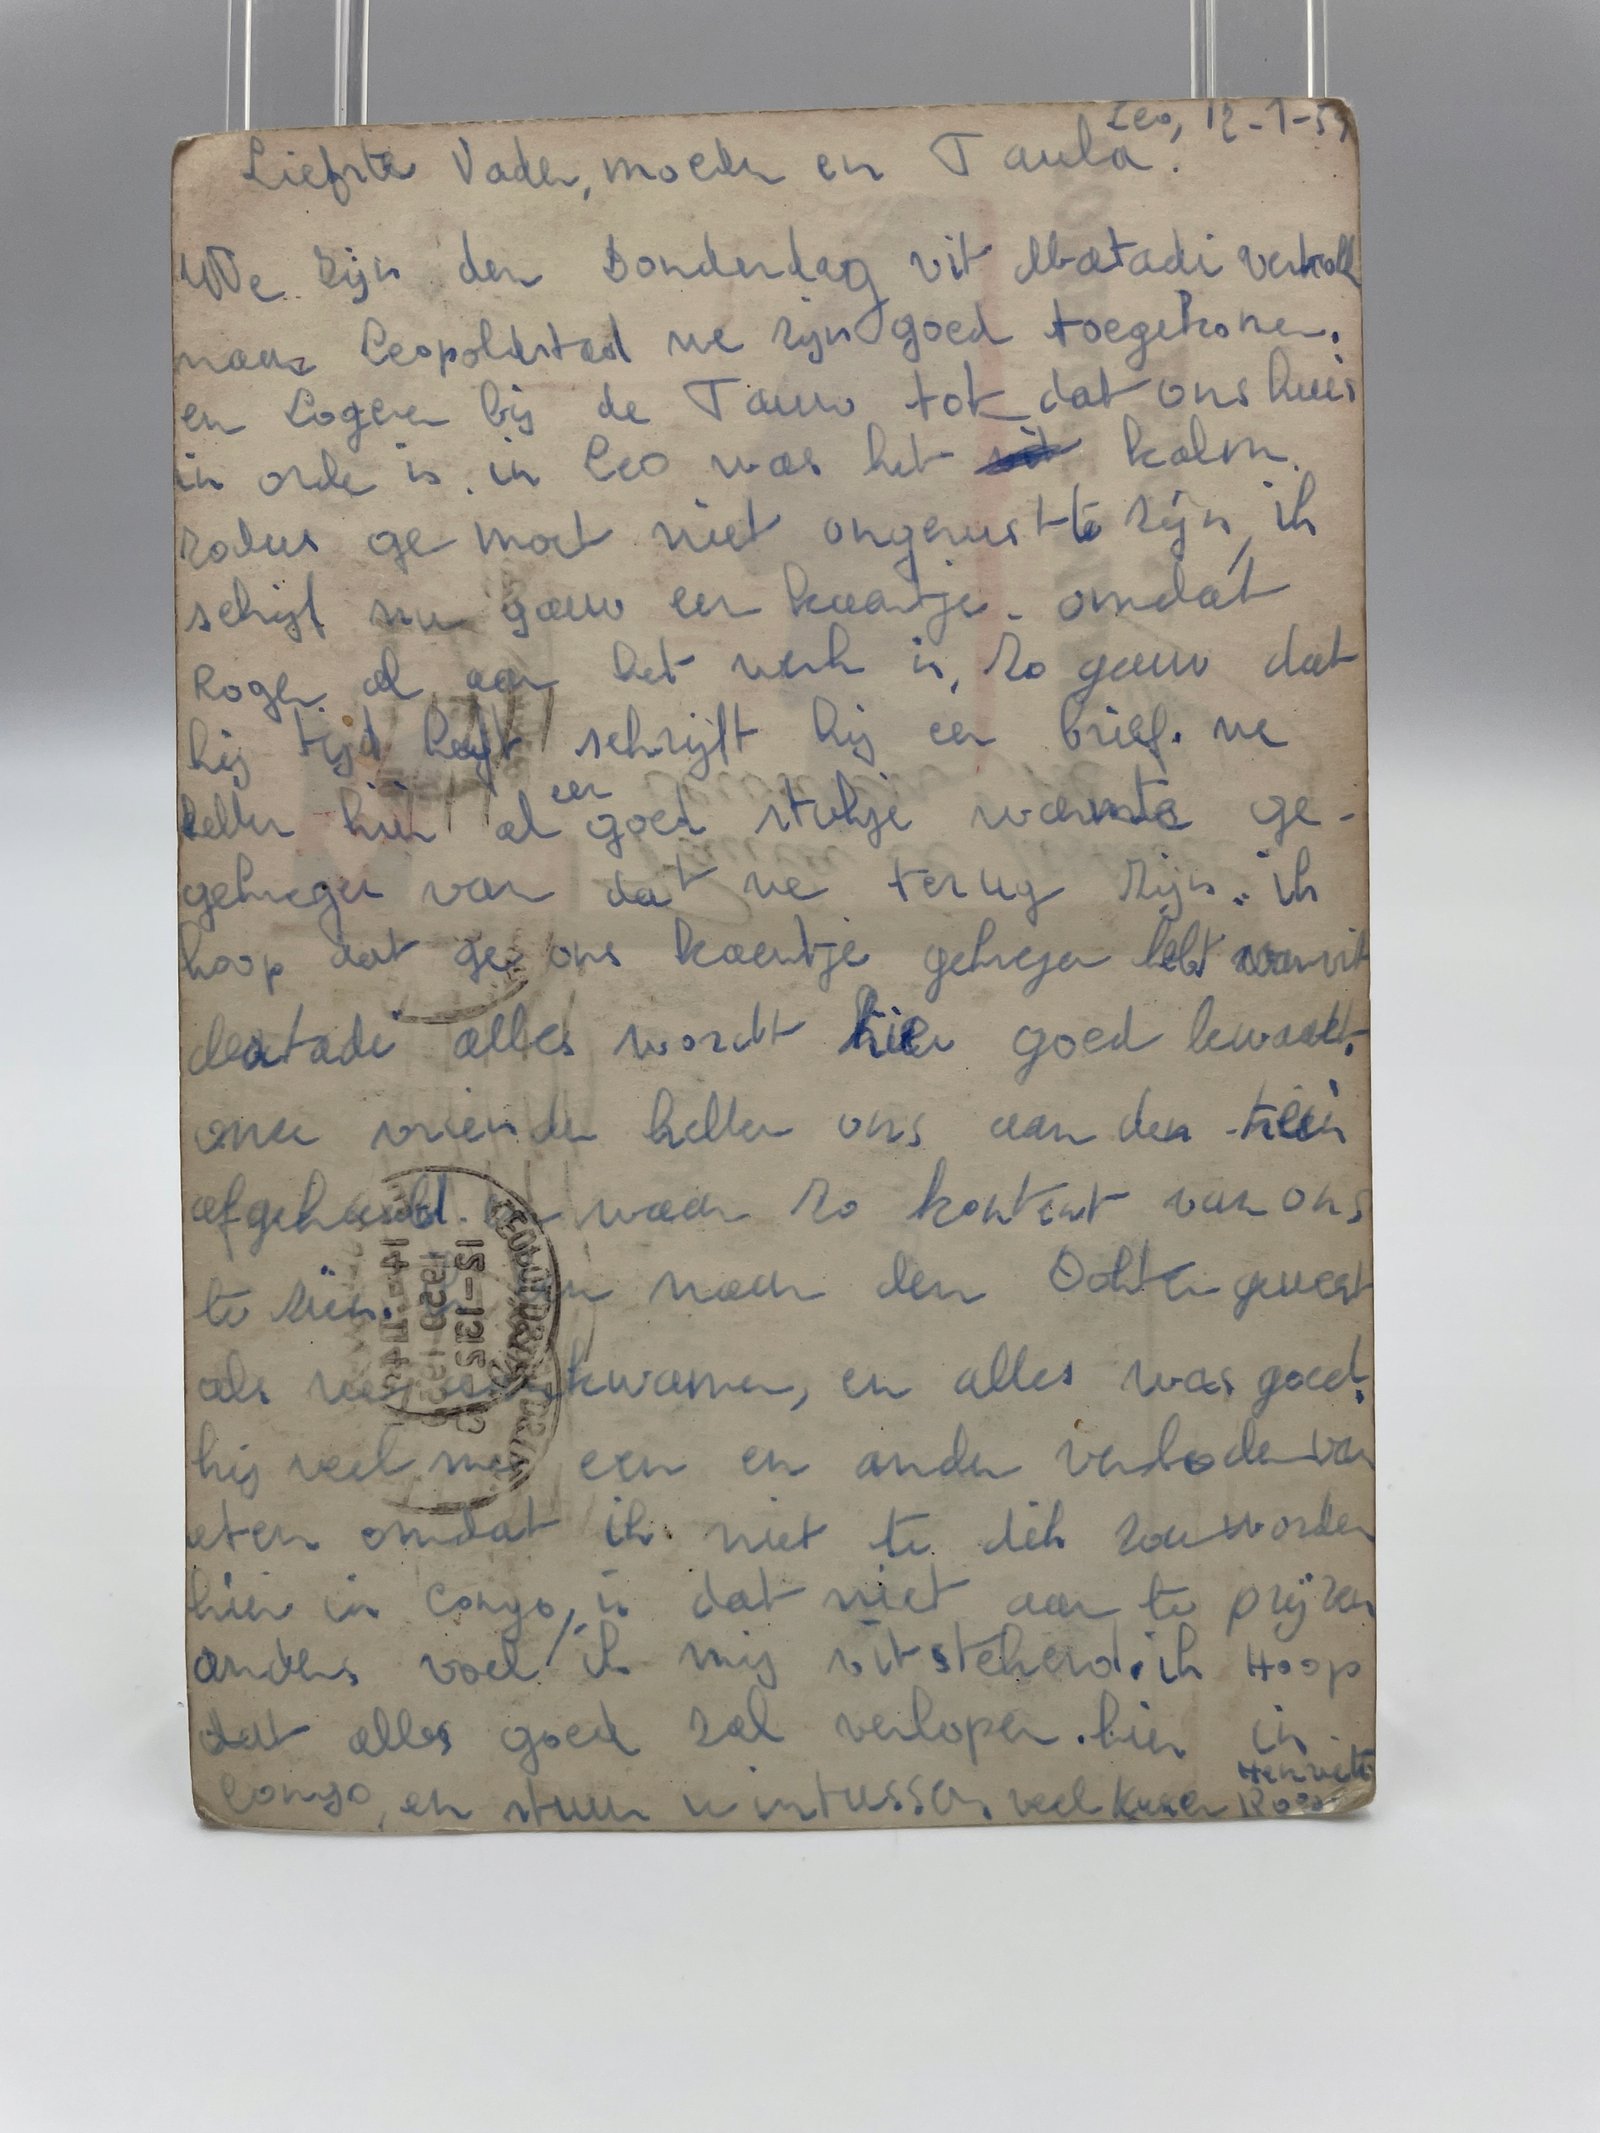 Leo, 12-1-59
Liefste Vader, moeder en Paula.
We zijn den Donderdag uit Matadi
naar Leopoldstad we zijn goed toegekomen.
en Logeren bij de Tauw tot dat ons huis
in orde is. in Leo was het kalm.
zodus ge moet niet ongerust te zijn, ik
schrijf nu gauw een kaartje. omdat
Roger al aan het werk is, zo gauw dat
hij tijd heeft schrijft hij een brief. we
hebben hier al een goed stukje warmte ge-
gekregen van dat we terug zijn. ik
hoop dat ge ons kaartje gekregen hebt van uit
Matadi alles wordt hier goed bewaakt.
onze vrienden hebben ons aan den trein
afgehaald. waren zo kontent van ons
te zien. ik ben naar den Dokter geweest
als we aankwamen, en alles was goed.
hij heeft me een en ander verboden van
eten omdat ik niet te dik zou worden
hier in Congo, is dat niet aan te prijzen
anders voel ik mij uitstekend. ik Hoop
dat alles goed zal verlopen. hier in
Congo, en stuur u intussen veel kussen Henriette
Roger
LEOPOLDVILLE
12-1
1959